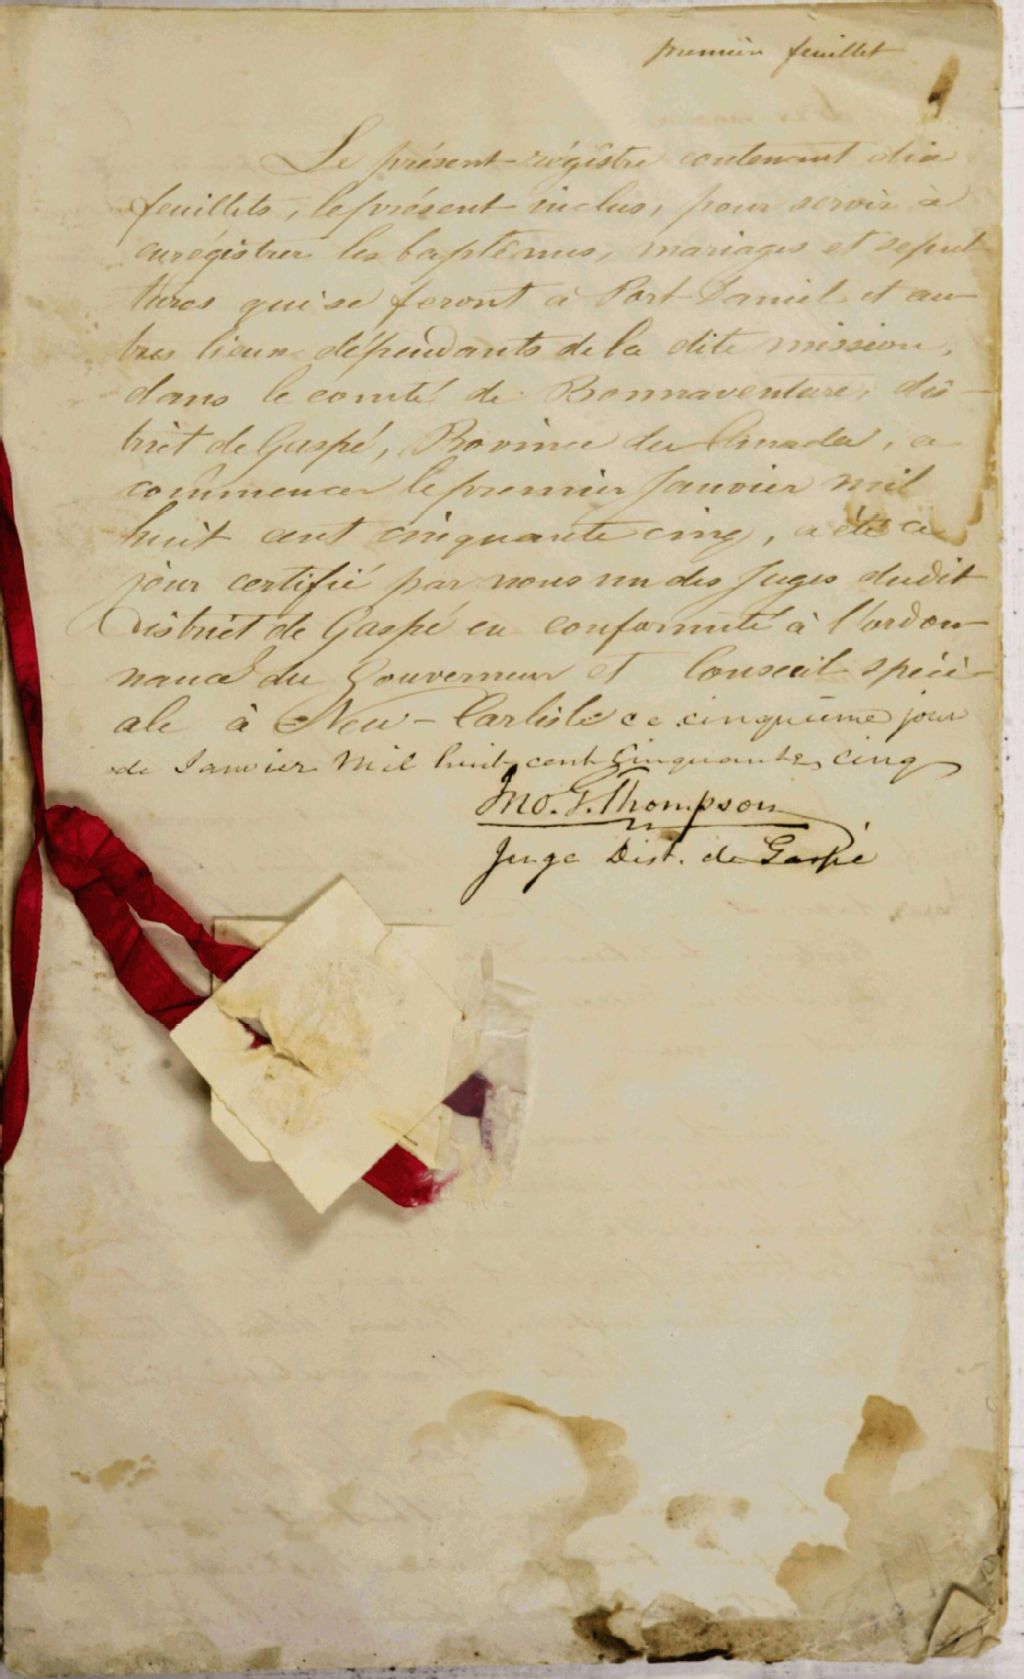 premier feuillet
Le présent régistre contenant dix
feuillets, le présent inclus, pour servir à
enrégistrer les baptêmes, mariages et sepul-
tures qui se feront à Port Daniel et au-
tres lieux dépendants de la dite mission,
dans le comté de Bonnaventure, dis-
trict de Gaspé, Province du Canada, a
commencer le premier Janvier mil
huit cent cinquante cinq, a été ce
jour certifié par nous un des Juges dudit
District de Gaspé en conformité à l'ordon-
nance du Gouverneur et Conseil spéci-
ale à New-Carlisle ce cinquième jour
de Janvier Mil huit cent Cinquante cinq
Jno. G. Thompson
Juge Dist. de Gaspé